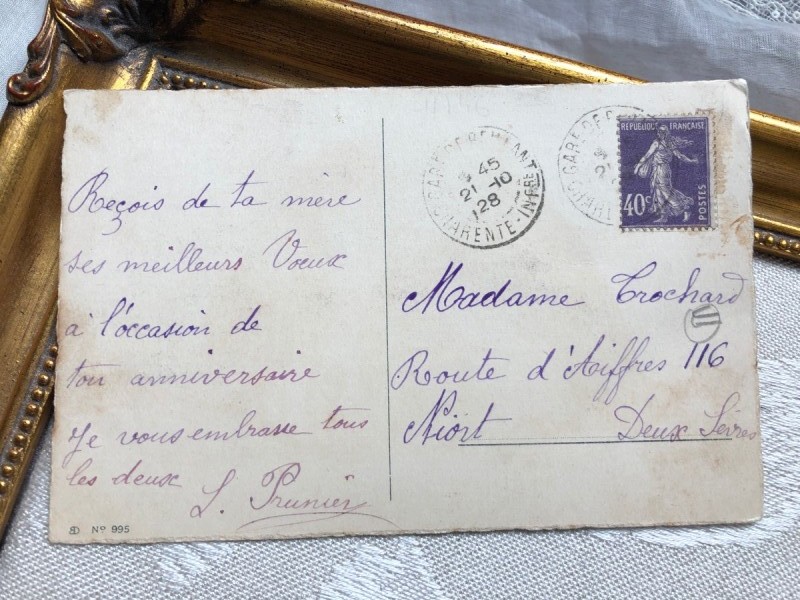 Reçois de ta mère
ses meilleurs Voeux
à l'occasion de
ton anniversaire
Je vous embrasse tous
les deux
L. Prunier
Nº 995
GARE DE
45
21-10
28
CHARENTE-INFRE
GARE DE
RÉPUBLIQUE FRANÇAISE
40c
POSTES
Madame Trochard
Route d'Aiffres 116
Niort Deux Sèvres